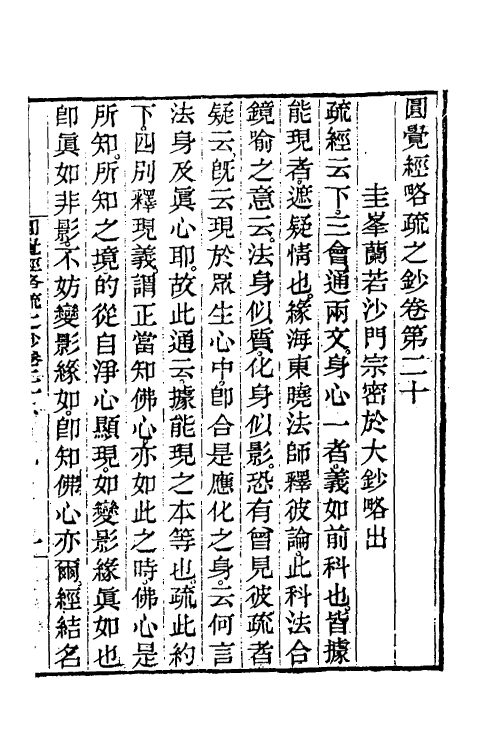 圓覺經略疏之鈔卷第二十
圭峯蘭若沙門宗密於大鈔略出
疏經云下。三會通兩文。身心一者。義如前科也。皆據
能現者。遮疑情也。緣海東曉法師釋彼論。此科法合
鏡喻之意云。法身似質。化身似影。恐有曾見彼疏者
疑云。既云現於眾生心中。卽合是應化之身。云何言
法身及眞心耶。故此通云。據能現之本等也。疏此約
下。四別釋現義。謂正當知佛心。亦如此之時。佛心是
所知。所知之境。的從自淨心顯現。如變影緣眞如也
卽眞如非影。不妨變影緣如。卽知佛心亦爾。經結名
圓覺經略疏之鈔卷二十